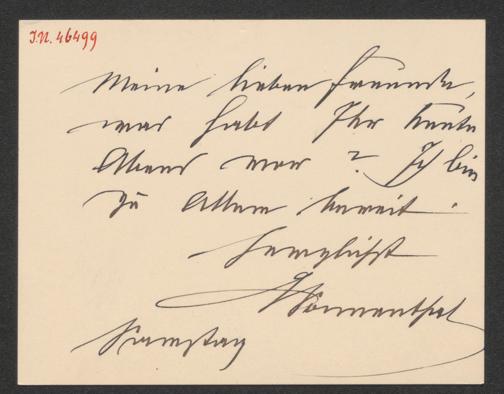 J.N. 46499
Meine lieben Freunde,
was habt Ihr heute
Abend vor? Ich bin
zu Allem bereit.
Herzlichst
Sonnenthal
Samstag